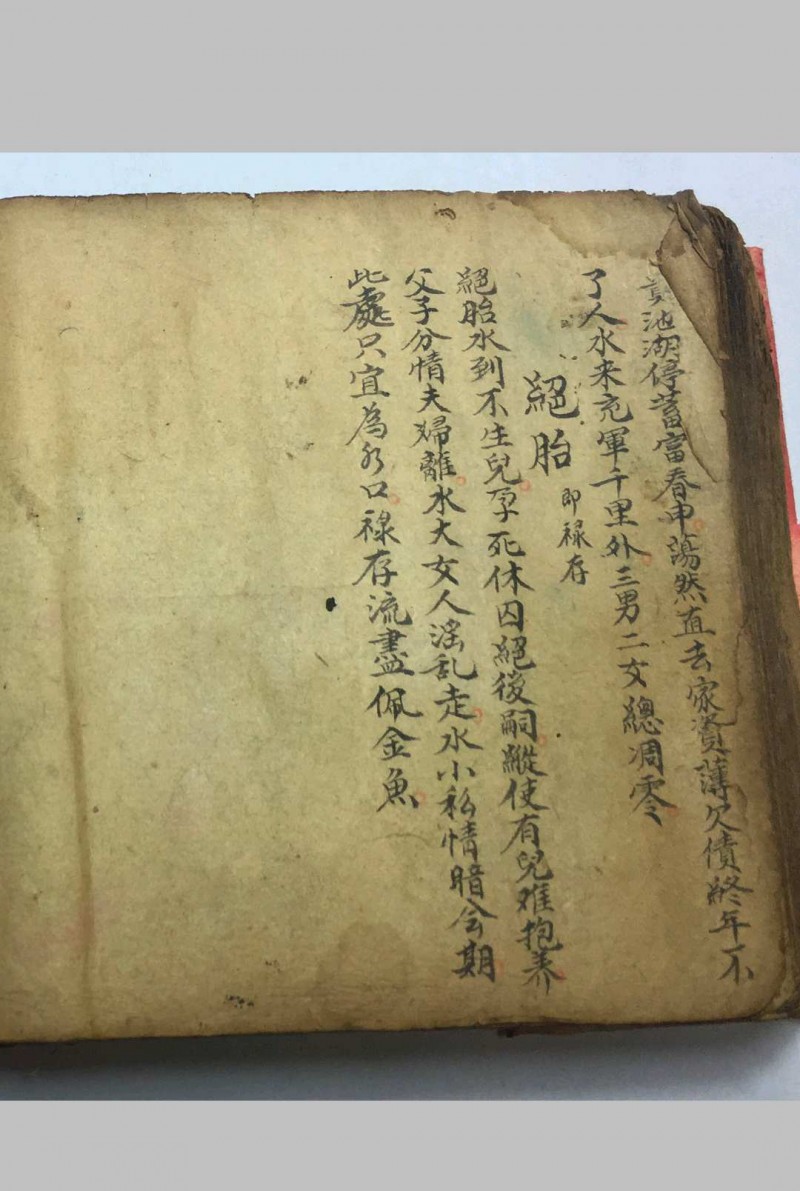 池湖停蓄富春申蕩然直去家資薄欠債終年不
了人水来充軍千里外三男二女總凋零
絕胎 即祿存
絕胎水到不生兒孕死休囚絕後嗣縱使有兒难抱养
父子分情夫婦離水大女人淫乱走水小私情暗会期
此處只宜為水口祿存流盡佩金魚